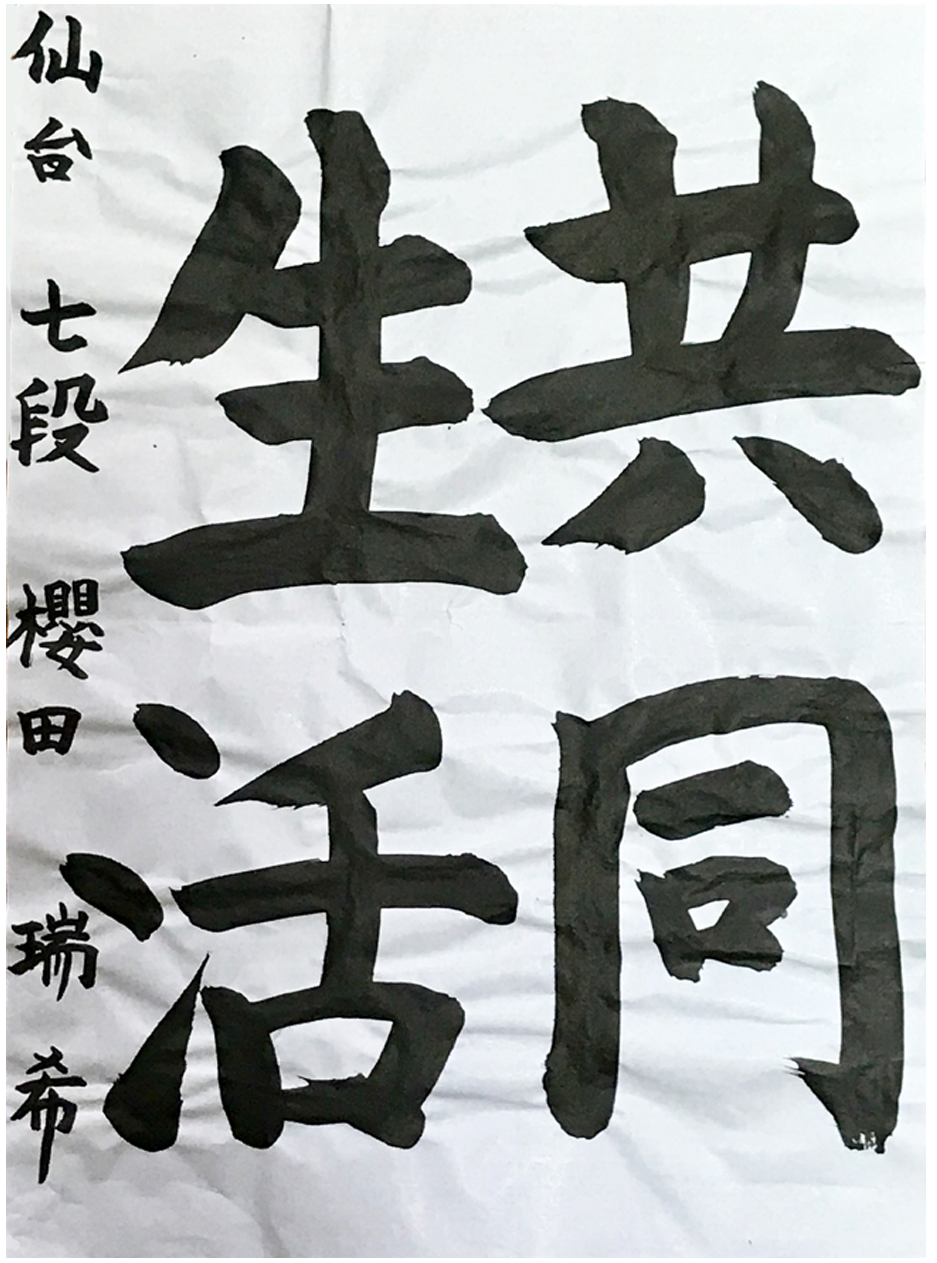 共同
生活
仙台 七段 櫻田 瑞希